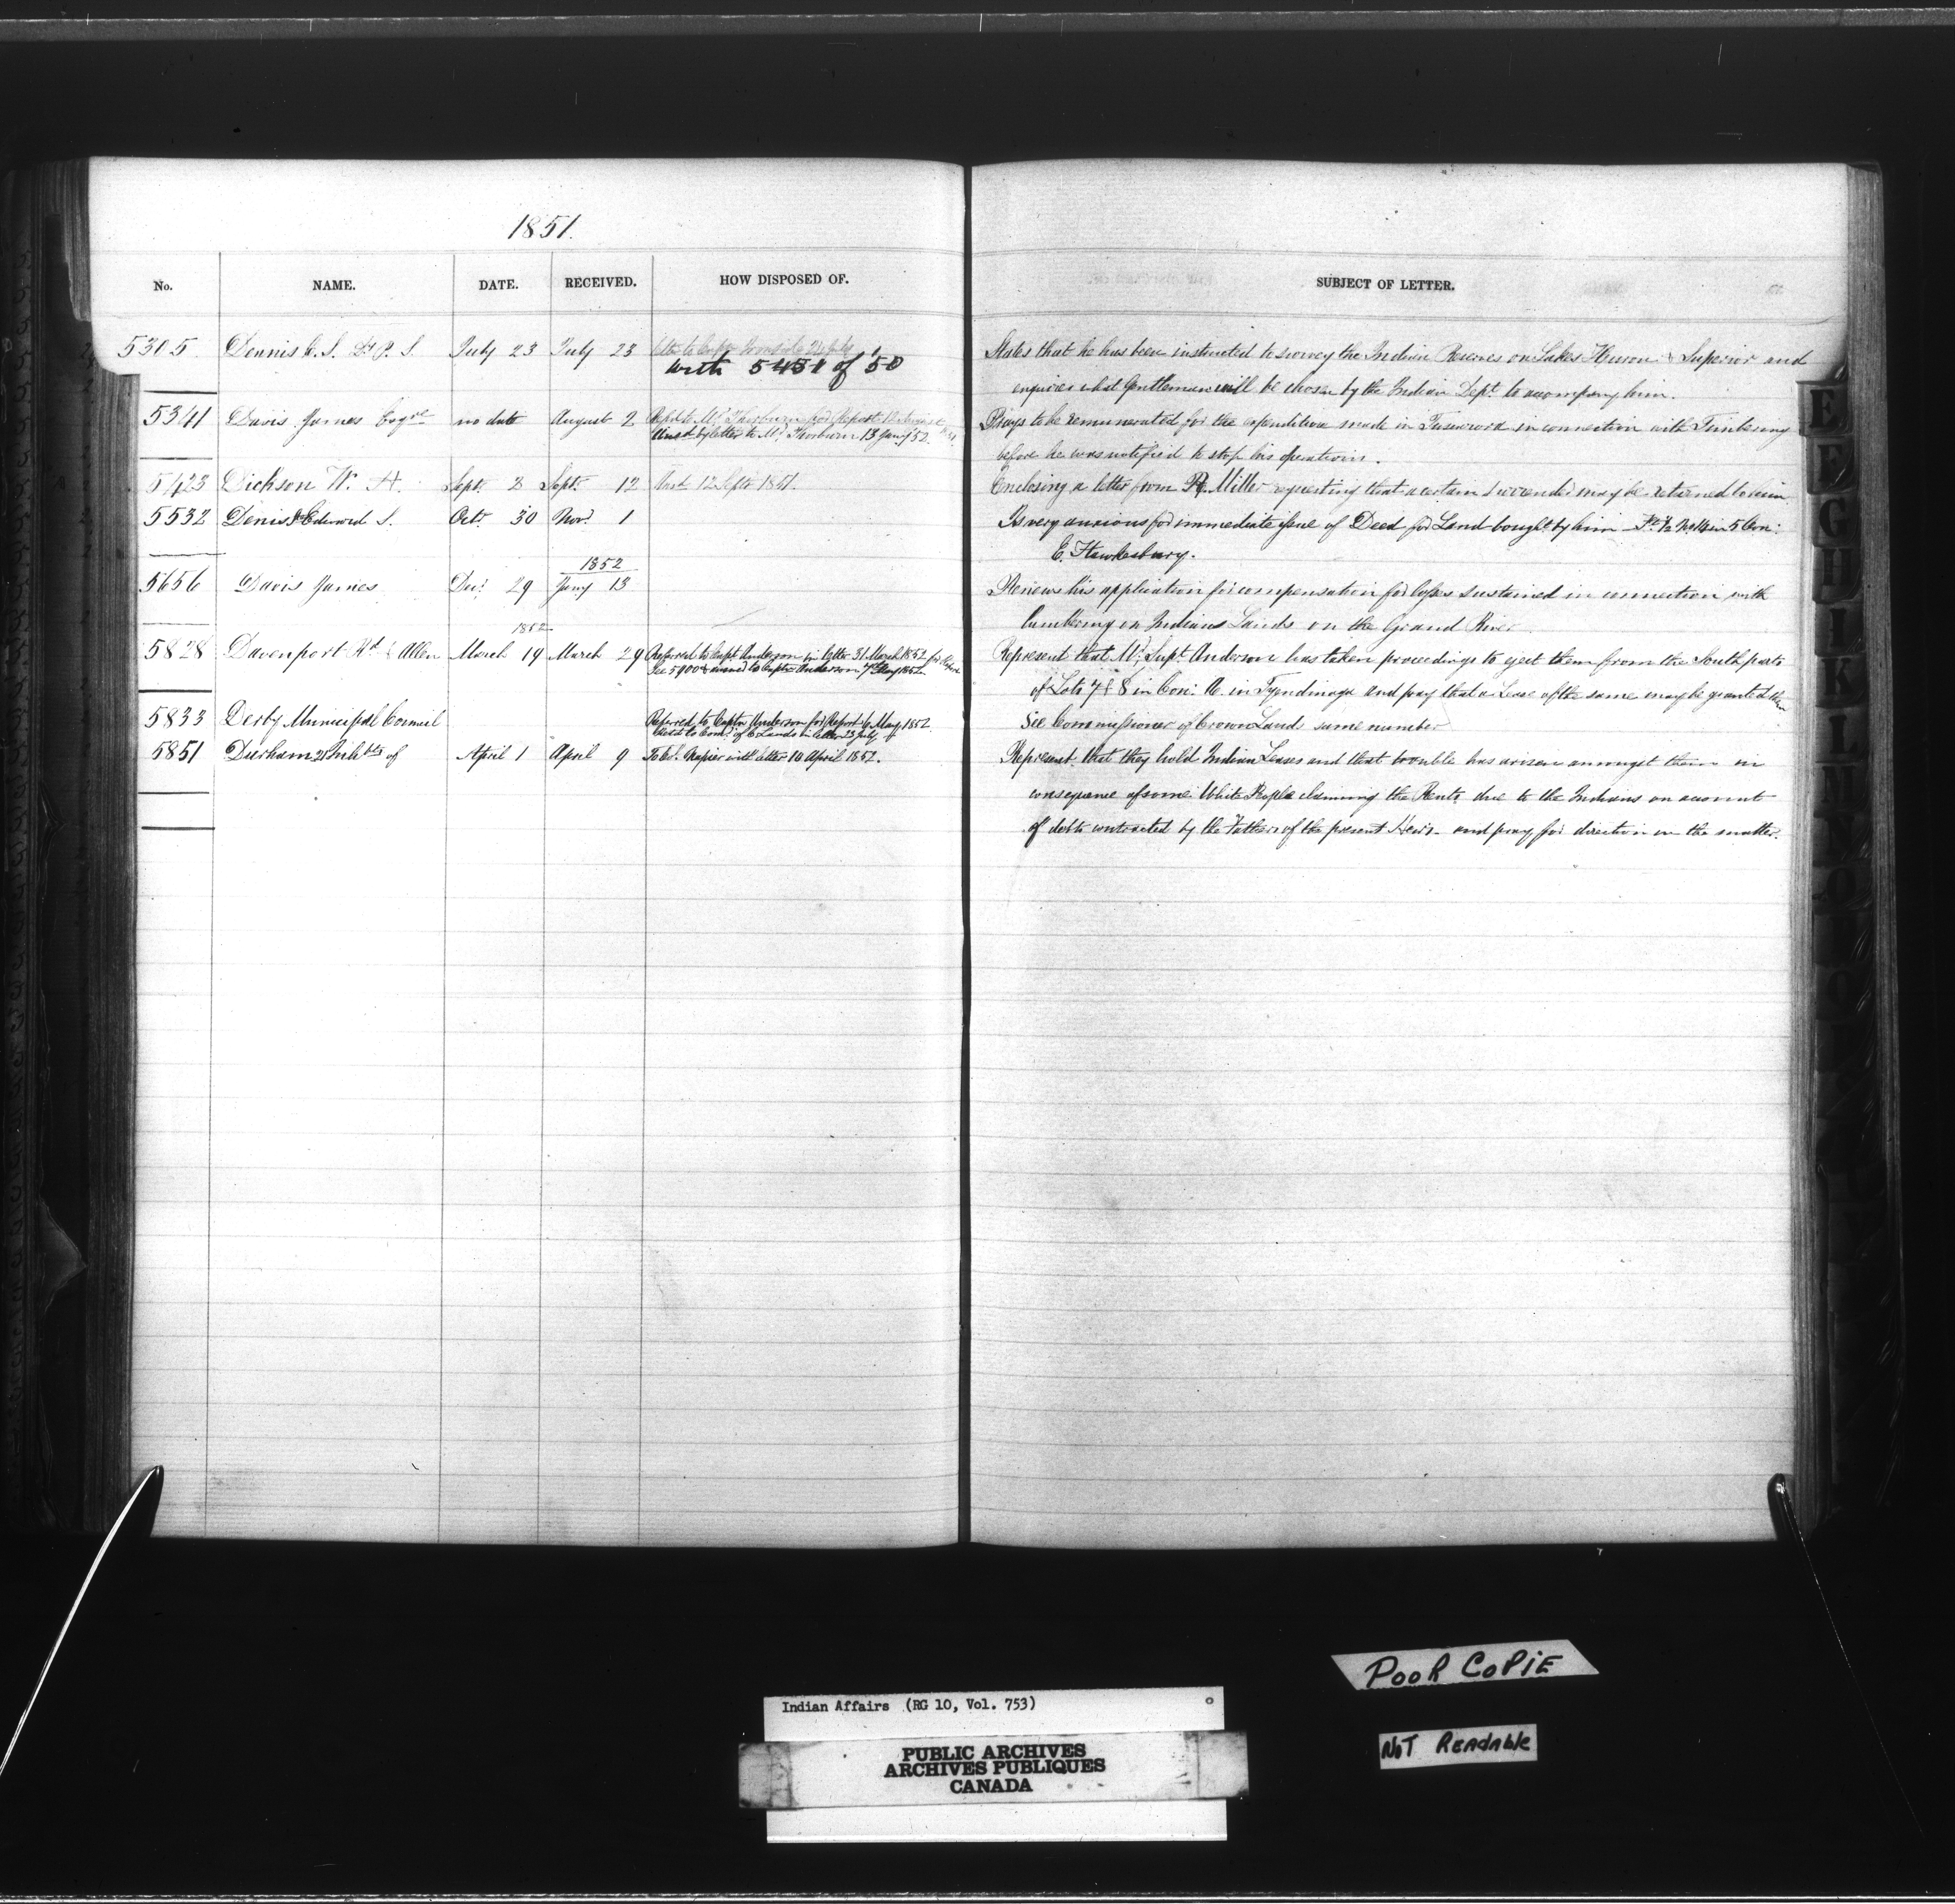 1851.
No. NAME. DATE. RECEIVED. HOW DISPOSED OF. SUBJECT OF LETTER.
5305 Dennis C. S. P. S. July 23 July 23
with 5451 of 50
States that he has been instructed to survey the Indian Reserves on Lakes Huron & Superior and
enquires what Gentleman will be chosen by the Indian Dept. to accompany him.
5341 Davis James Esqre no date August 2 Mr. Thorburn for Report
Ansd by letter to Mr. Thorburn 13 Jany '52.
Prays to be remunerated for the expenditure made in Tuscarora in connection with Timbering
before he was notified to stop his operations.
5423 Dickson W. A. Sept. 2 Sept. 12 Ansd 12 Septr 1851.
Enclosing a letter from Miller requesting that a certain surrender may be returned to him
5532 Denis Edward S. Octr 30 Novr. 1
Is very anxious for immediate issue of Deed for Land bought by him 1/2 No 16 in 5 Con:
E. Hawkesbury.
1852
5656 Davis James Decr 29 Jany 13
Renews his application for compensation for losses sustained in connection with
lumbering on Indians Lands on the Grand River
1852
5828 Davenport Rd & Allen March 19 March 29 Referred to Capt Anderson in letter 31 March 1852 for Report
See 5900 to Captn Anderson 1852
Represent that Mr. Supt. Anderson has taken proceedings to eject them from the South parts
of Lots 7 & 8 in Con: A. in Tyendinaga and pray that a Lease of the same may be granted them
5833 Derby Municipal Council Referred to Captn Anderson for Report 6 May 1852
to Comr. of C Lands in letter 23 July
See Commissioner of Crown Lands same number
5851 Durham 21 Inhbts of April 1 April 9 To Col. Napier with letter 10 April 1852.
Represent that they hold Indian Leases and that trouble has arisen amongst them in
consequence of some White People claiming the Rents due to the Indians on account
of debts contracted by the Fathers of the present Heirs - and pray for direction in the matter.
E
F
G
H
I
K
L
POOR COPIE
NOT READABLE
Indian Affairs (RG 10, Vol. 753)
PUBLIC ARCHIVES
ARCHIVES PUBLIQUES
CANADA